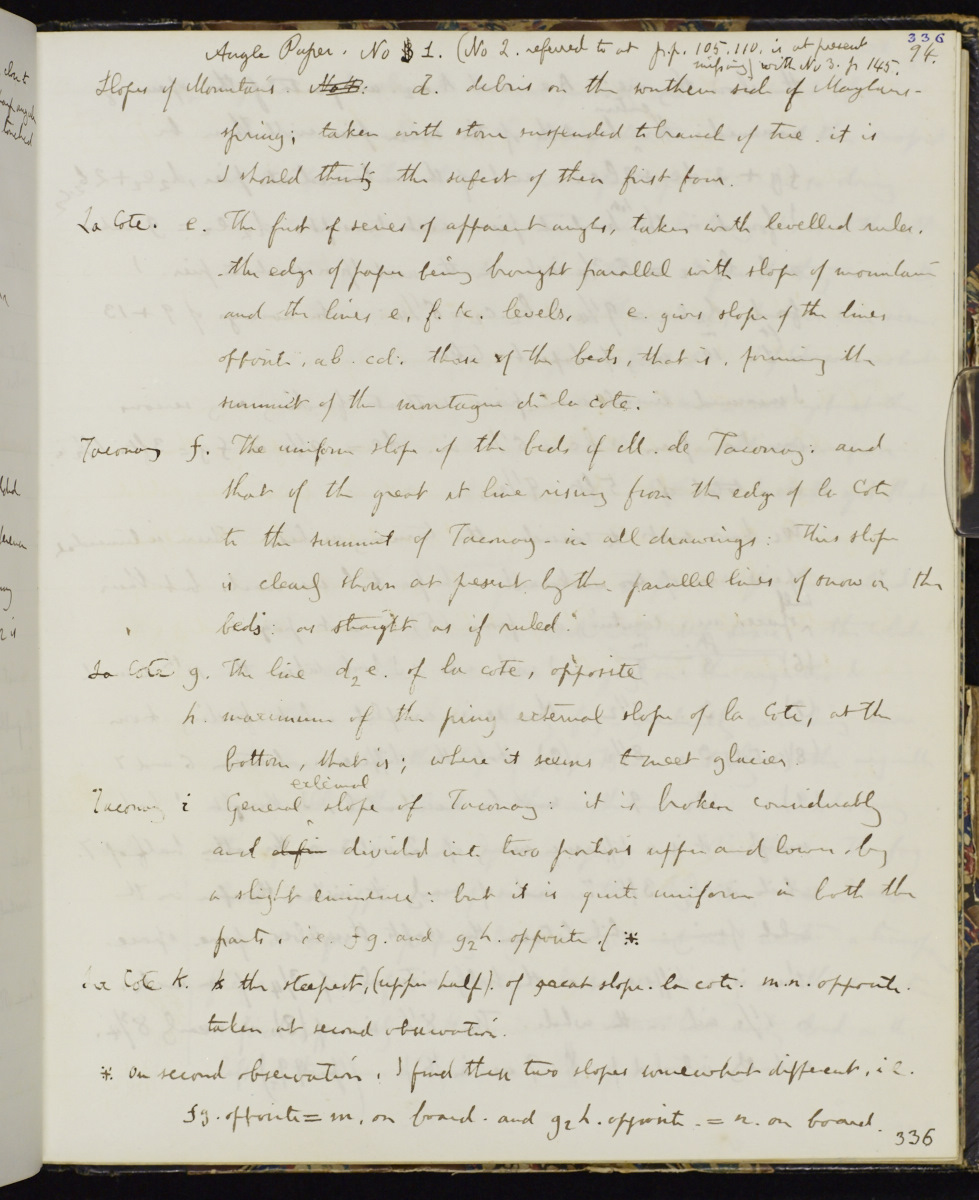 336
94.
Angle Paper. No 1. (No 2. referred to at p.p. 105.110. is at present
missing) with No 3. p 145.
Slopes of Mountains. d. debris on the southern side of Maglans-
spring; taken with stone suspended to branch of tree. it is
I should think the safest of these first four.
La Cote. e. The first of series of apparent angles, taken with levelled rules.
the edge of paper being brought parallel with slope of mountain
and the lines e, f. &c. levels. e. gives slope of the lines
opposite, ab. cd: those of the beds, that is, forming the
summit of the montagne de la cote.
Taconay f. The uniform slope of the beds of M. de Taconay: and
that of the great st line rising from the edge of la Cote
to the summit of Taconay - in all drawings: this slope
is clearly shown at present by the parallel lines of snow on the
beds: as straight as if ruled.
La Cote g. The line d2 e. of la cote, opposite
h. maximum of the piny external slope of la Cote, at the
bottom, that is; where it seems to meet glacier.
external
Taconay i General slope of Taconay: it is broken considerably
and divided into two portions upper and lower by
a slight eminence: but it is quite uniform in both the
parts, i.e. fg. and g2h. opposite. *
La Cote K. k the steepest, (upper half). of great slope. la cote. m.n. opposite.
taken at second observation.
* on second observation, I find these two slopes somewhat different, i e.
fg. opposite = m, on board. and g2 h. opposite. = n. on board.
336